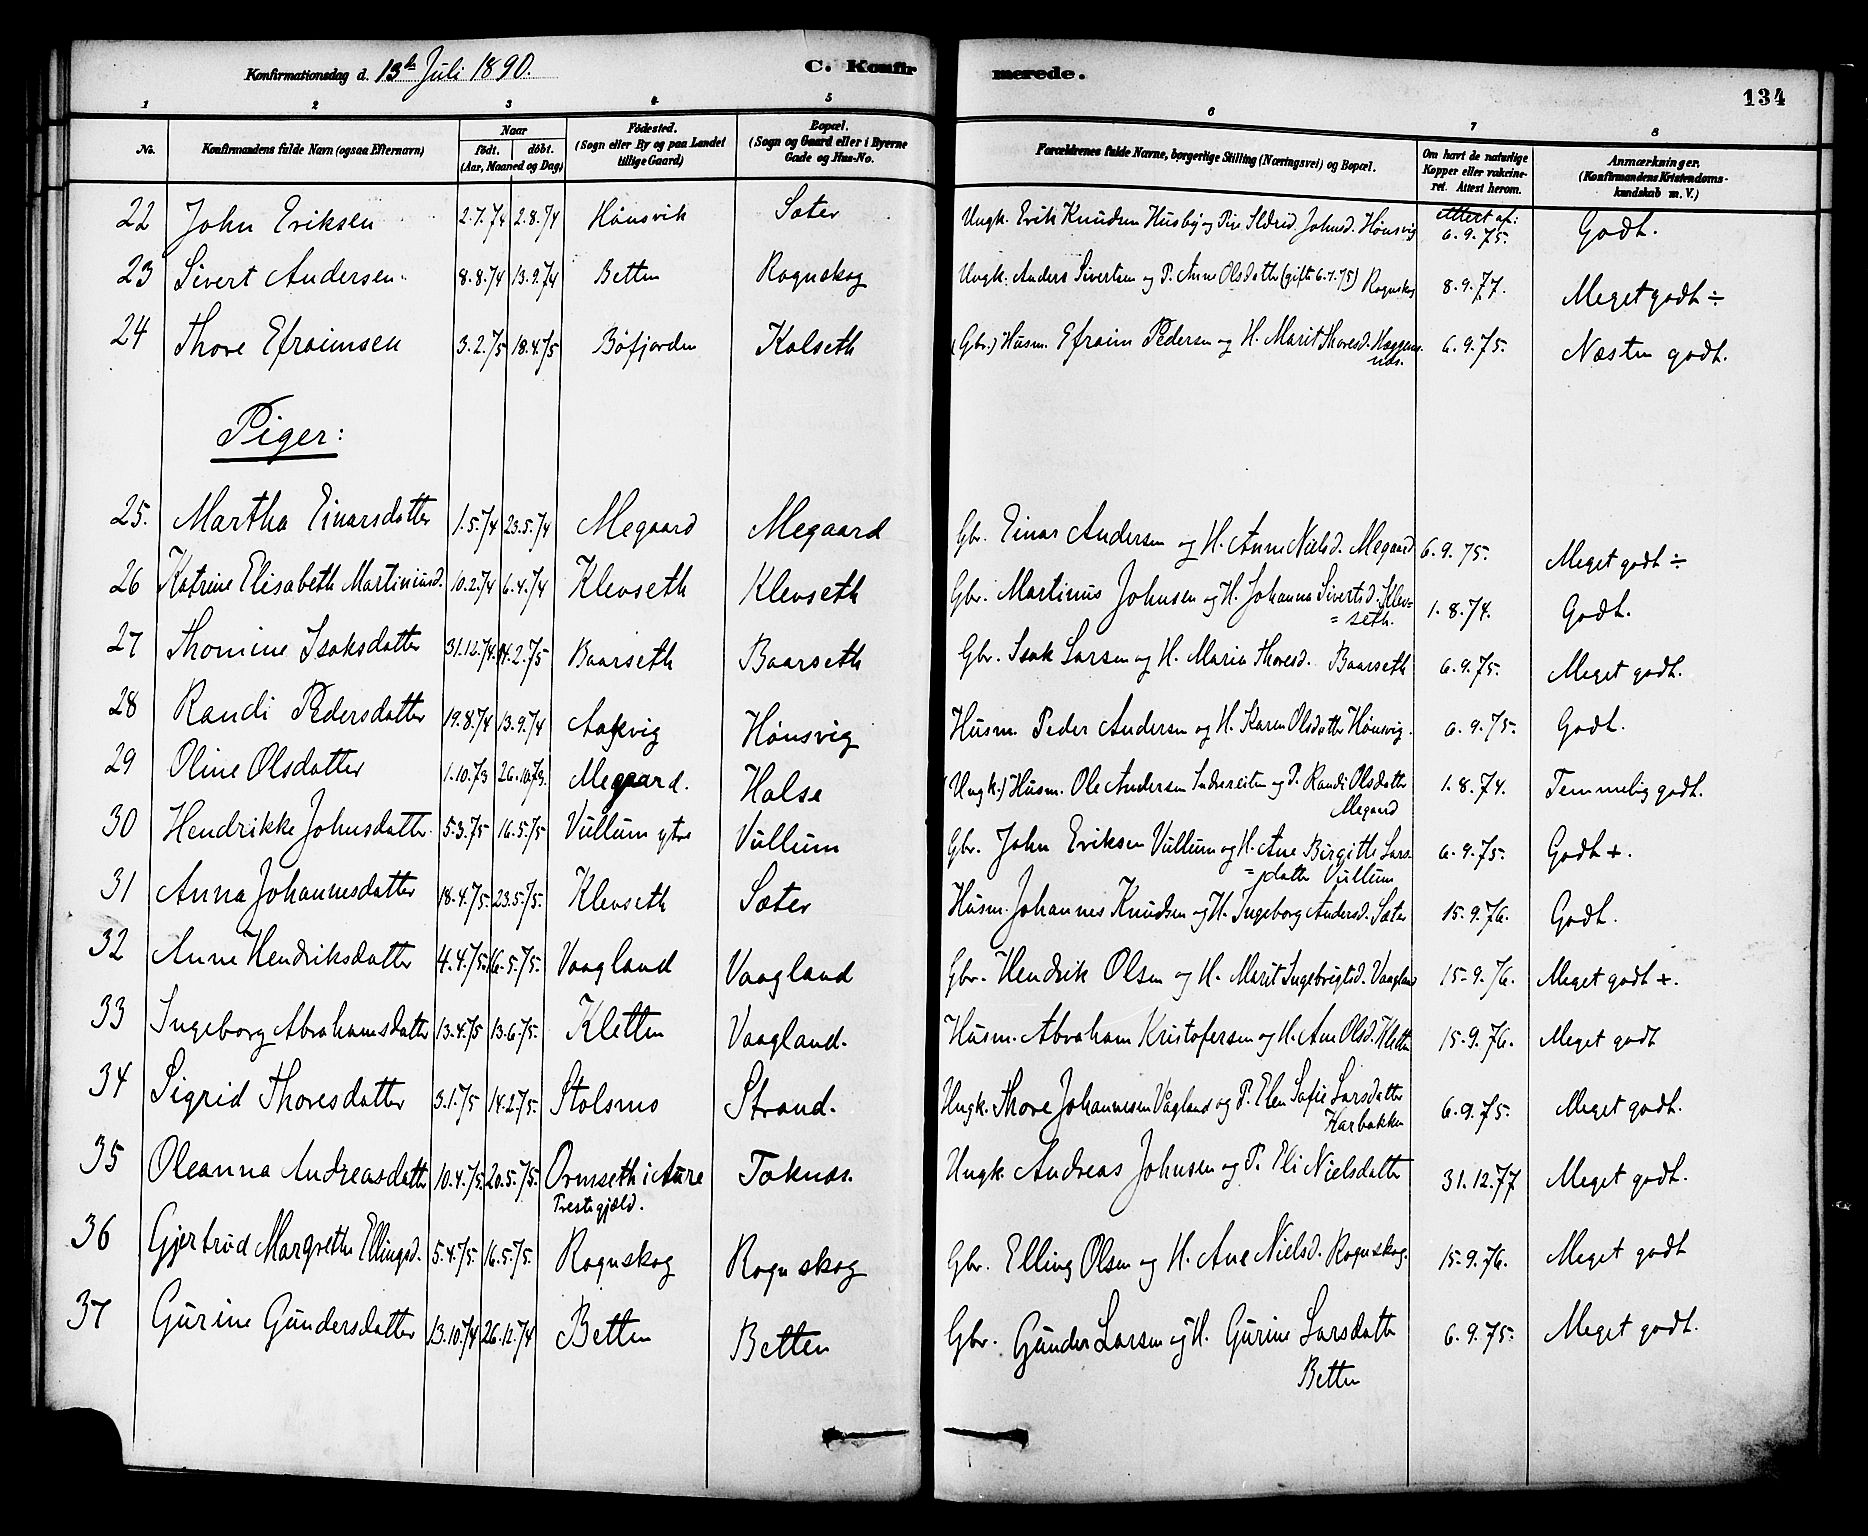 Konfirmationsdag d. 13de Juli 1890.
C. Konfirmerede.
134
1 2 3 4 5 6 7 8
No. Konfirmandens fulde Navn (ogsaa Efternavn) Naar født. døbt. (Aar, Maaned og Dag) Fødested. (Sogn eller By og paa Landet tillige Gaard) Bopæl. (Sogn og Gaard eller i Byerne Gade og Hus-No. Forældrenes fulde Navne, borgerlige Stilling (Næringsvei) og Bopæl. Om havt de naturlige Kopper eller vakcineret. Attest herom. Anmærkninger. (Konfirmandens Kristendomskundskab m. V.)
22 John Eriksen 2.7.74 2.8.74 Hønsvik Sæter Ungk. Erik Knudsen Husby og Pige Sldrid Johnsd. Hønsvig Attest af: 6.9.75. Godt.
23 Sivert Andersen 8.8.74 13.9.74 Betten Rognskog Ungk. Anders Sivertsen og P. Anne Olsdatter (gift 6.7.75) Rognskog 8.9.77. Meget godt ÷
24 Thore Efraimsen 3.2.75 18.4.75 Bøfjorden Kalseth (Gbr.) Husm. Efraim Pedersen og H. Marit Thoresd. Hæggem- 6.9.75. Næsten godt.
næs.
Piger:
25. Martha Einarsdatter 1.5.74 23.5.74 Megaard Megaard Gbr. Einar Andersen og H. Anne Nielsd. Megaard 6.9.75. Meget godt ÷
26 Katrine Elisabeth Martiniusd. 10.2.74 6.4.74 Klevseth Klevseth Gbr. Martinus Johnsen og H. Johanna Sivertsd. Klev= 1.8.74. Godt.
= seth.
27 Thomine Isaksdatter 31.12.74. 14.2.75 Baarseth Baarseth Gbr. Isak Larsen og H. Maria Thoresd. Baarseth 6.9.75. Meget godt.
28 Randi Pedersdatter 19.8.74 13.9.74 Aakvig Hønsvig Husm. Peder Andersen og H. Karen Olsdatter Hønsvig. 6.9.75. Godt.
29 Oline Olsdatter 1.10.73 26.10.73. Megaard. Halse (Ungk.) Husm. Ole Andersen Indrereiten og P. Randi Olsdatter 1.8.74. Temmelig godt.
Megaard
30 Hendrikke Johnsdatter 5.3.75 16.5.75 Vullum ytre Vullum Gbr. John Eriksen Vullum og H. Ane Birgitte Lars- 6.9.75. Godt +.
= datter Vullum
31 Anna Johannesdatter 18.4.75. 23.5.75. Klevseth Sæter Husm. Johannes Knudsen og H. Ingeborg Andersd. Sæter 15.9.76. Godt.
32 Anne Hendriksdatter 4.4.75. 16.5.75. Vaagland Vaagland Gbr. Hendrik Olsen og H. Marit Ingebrigtsd. Vaagland 15.9.76. Meget godt +.
33 Ingeborg Abrahamsdatter 13.4.75 13.6.75. Kletten Vaagland. Husm. Abraham Kristofersen og H. Ane Olsd. Kletten 15.9.76. Meget godt
34 Sigrid Thoresdatter 3.1.75 14.2.75. Stolsmo Strand. Ungk. Thore Johannesen Vågland og P. Elen Sofie Larsdatter 6.9.75. Meget godt.
Harbakken
35 Oleanna Andreasdatter 10.4.75. 20.5.75. Ormseth i Aure Taknæs. Ungk. Andreas Johnsen og P. Eli Nielsdatter 31.12.77 Meget godt.
Prestegjæld.
36 Gjertrud Margrethe Ellingsd. 5.4.75. 16.5.75. Rognskog Rognskog Gbr. Elling Olsen og H. Ane Nielsd. Rognskog. 15.9.76. Meget godt
37 Gurine Gundersdatter 13.10.74 26.12.74 Betten Betten Gbr. Gunder Larsen og H. Gurine Larsdatter 6.9.75. Meget godt.
Betten